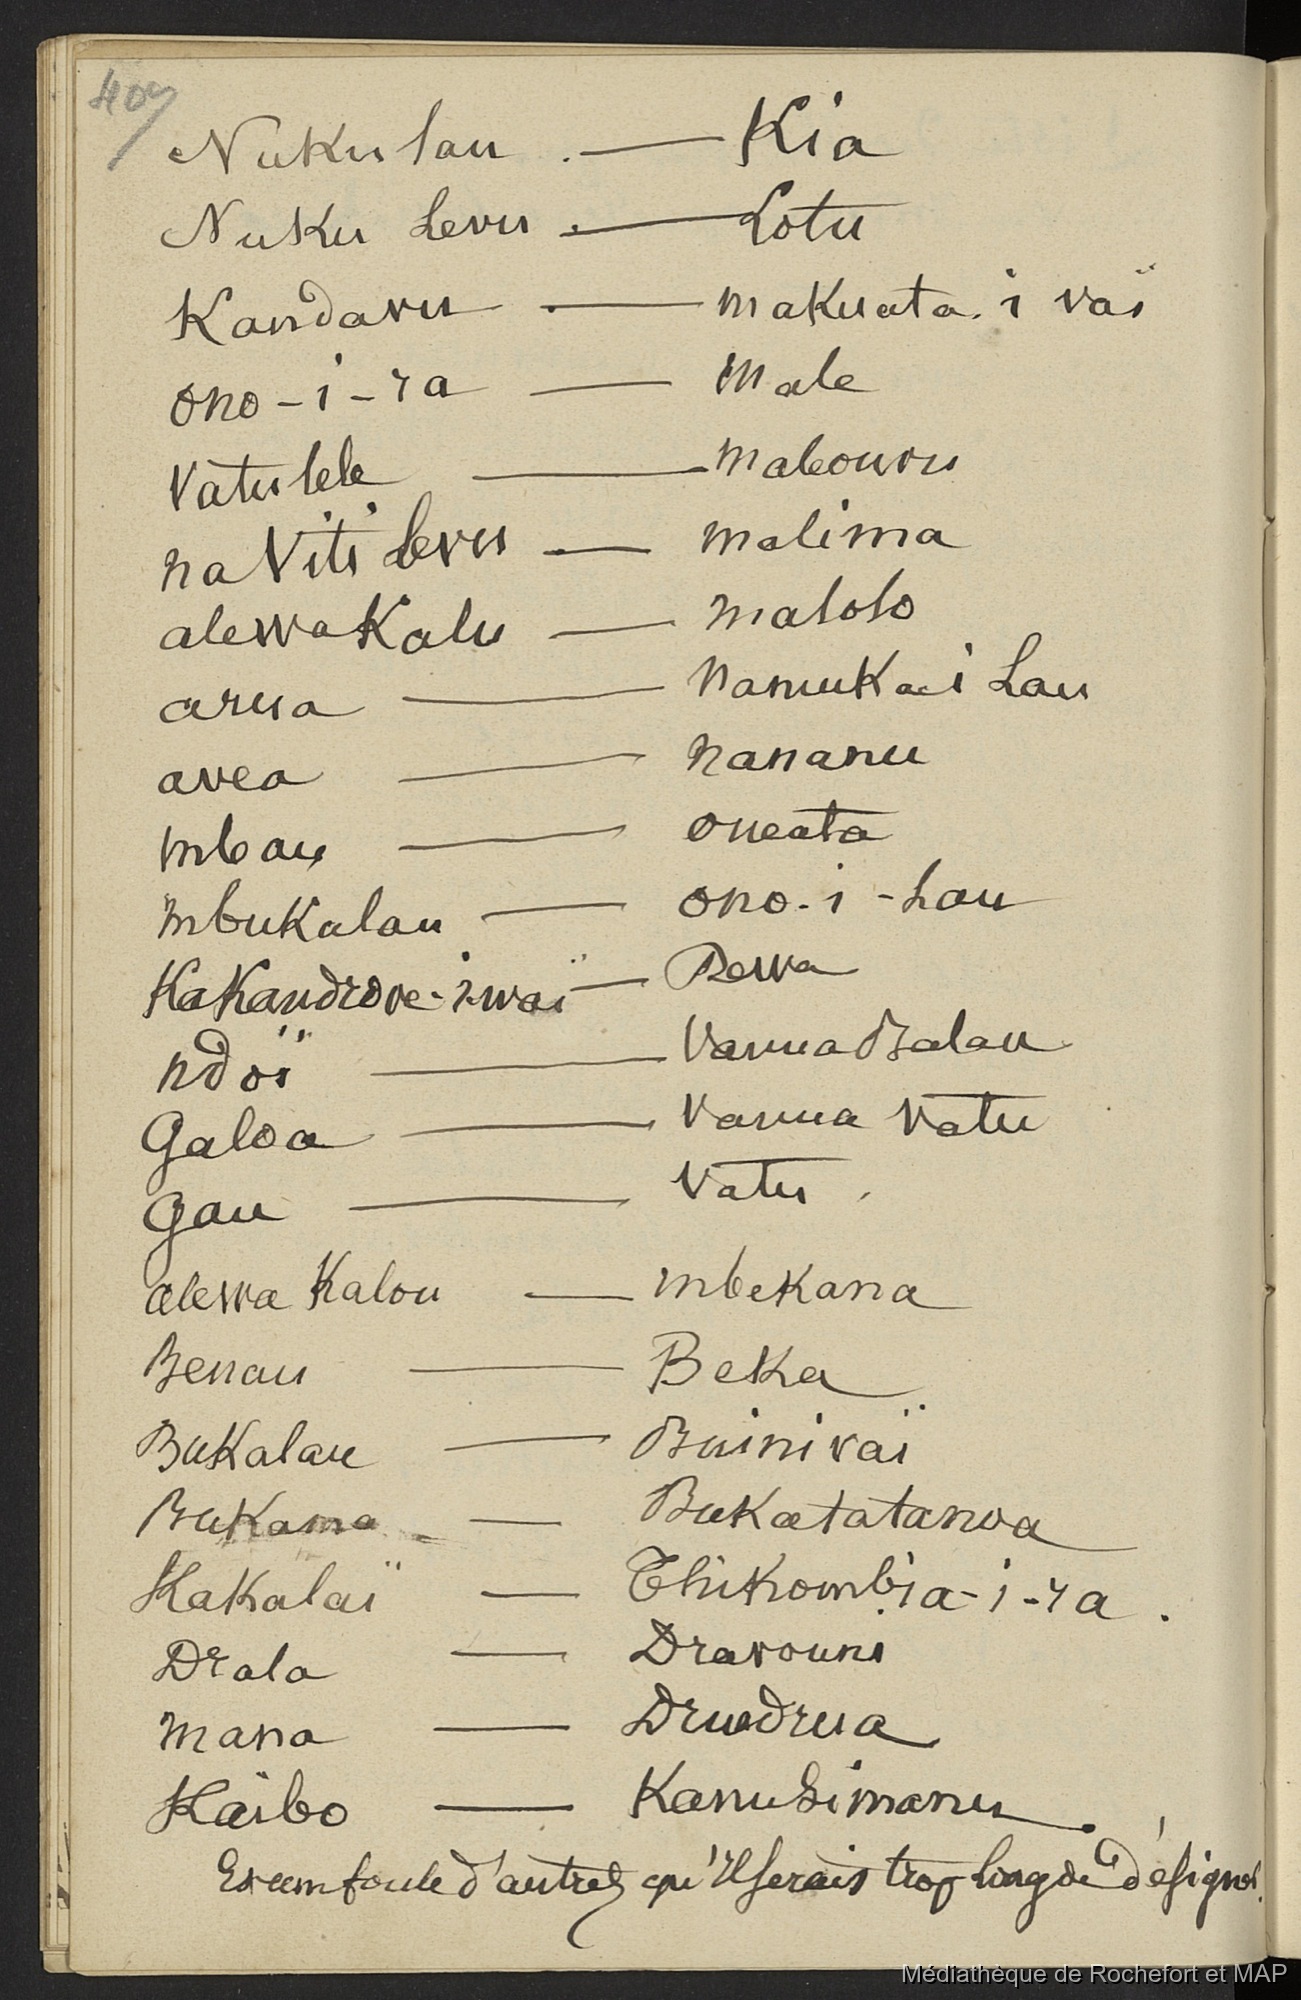 407
Nukulau — Kia
Nuku Levu — Lotu
Kandavu — makuata. i vaï
ono-i-ra — male
Vatulele — maleouvu
na Viti Levu — malima
alewa Kalu — malolo
arua — namuka i Lau
avea — nananu
mbau — oneata
mbukalau — ono-i-Lau
Kakaudrove-i-waï — Rewa
ndoï — Vanua Balau
Galoa — Vanua Vatu
Gau — Vatu.
alewa Kalou — mbekana
Benau — Beka
Bukalau — Buinivaï
Bukama — Bukatatanoa
Kakalaï — Thikombia-i-ra.
Drala — Dravouni
mana — Druadrua
Kaïbo — Kanusimanu.
Et une foule d'autres qu'il serais trop long de désigner.
Médiathèque de Rochefort et MAP